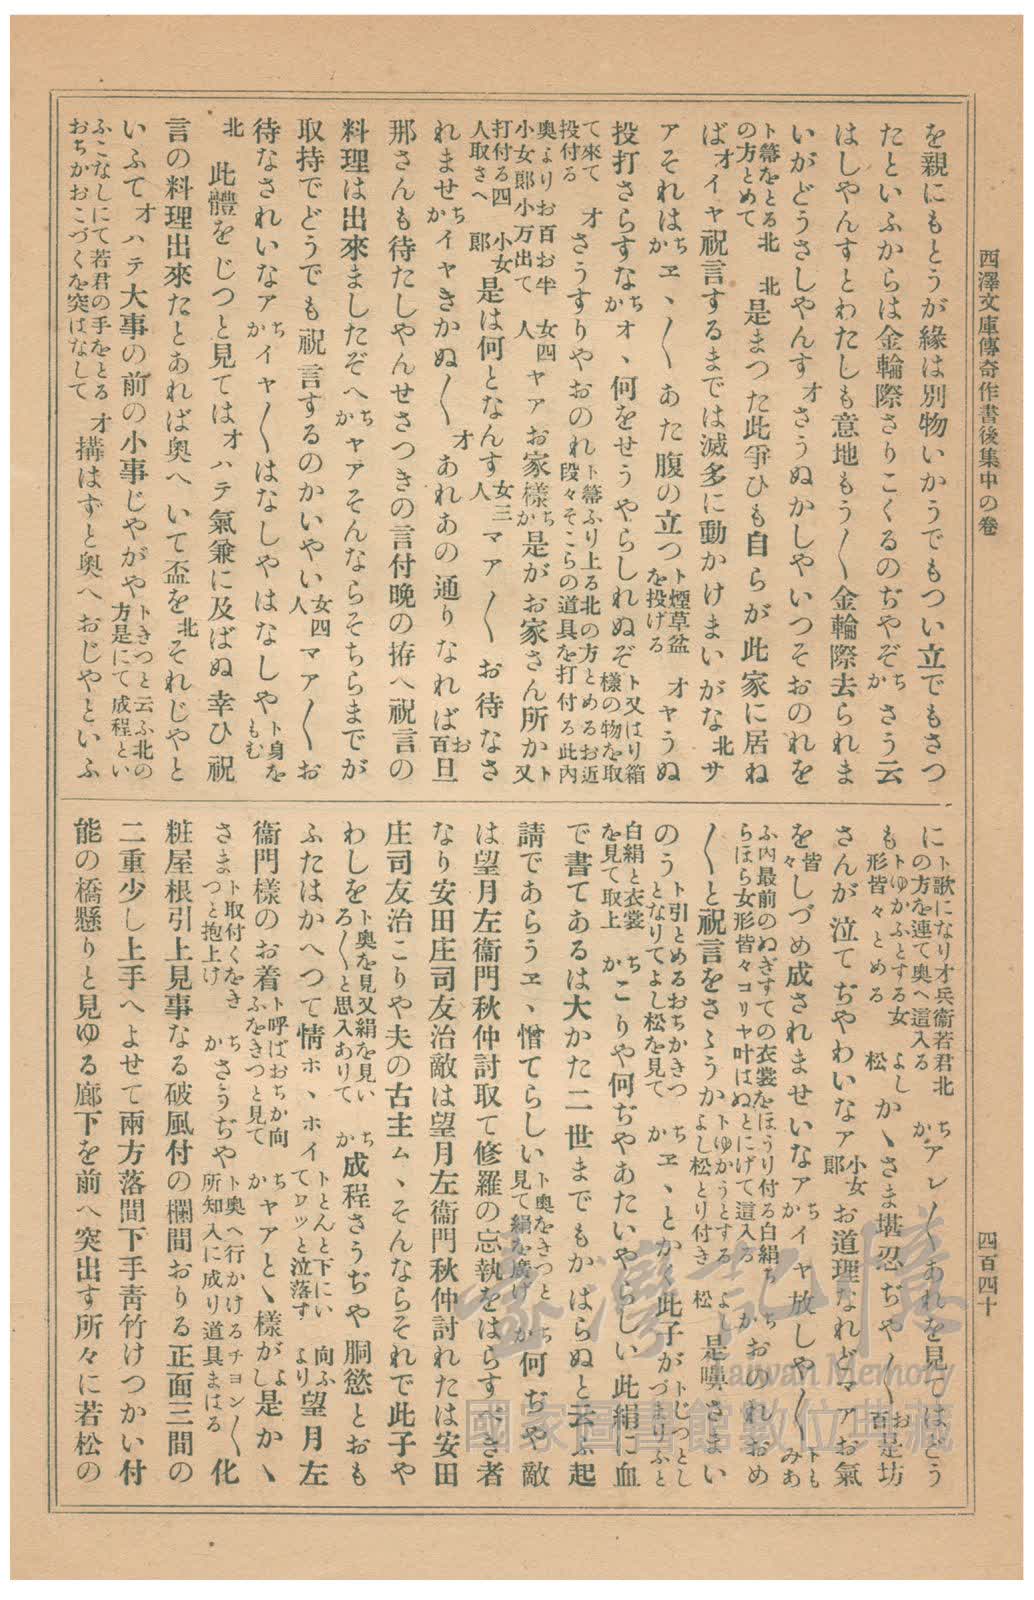 西澤文庫傳奇作書後集中の卷
四百四十
を親にもとうが緣は別物いかうでもつい立でもさつ
たといふからは金輪際さりこくるのぢやぞかちさう云
はしやんすとわたしも意地もう〱金輪際去られま
いがどうさしやんすオさうぬかしやいつそおのれを
ト箒をとる北の方とめて北是まつた此爭ひも自らが此家に居ね
ばオイヤ祝言するまでは滅多に動かけまいがな北サ
アそれはかちヱヽ〱あた腹の立つト煙草盆を投げるオヤうぬ
投打さらすなかちオヽ何をせうやらしれぬぞト又はり箱樣の物を取
て來て投付るオさうすりやおのれト箒ふり上る北の方とめるお近段々そこらの道具を打付る此內
奧よりお百お牛小女郞小万出て女四人ヤアお家樣かち是がお家さん所かト又
打付る四人取さへ小女郞是は何となんす女三人マア〱お待なさ
れませかちイヤきかぬ〱オあれあの通りなればお百旦
那さんも待たしやんせさつきの言付晩の拵へ祝言の
料理は出來ましたぞへかちヤアそんならそちらまでが
取持でどうでも祝言するのかいやい女四人マア〱お
待なされいなアかちイヤ〱はなしやはなしやト身をもむ
北此體をじつと見てはオハテ氣兼に及ばぬ幸ひ祝
言の料理出來たとあれば奧へいて盃を北それじやと
いふてオハテ大事の前の小事じやがやトきつと云ふ北の方是にて成程とい
ふこなしにて若君の手をとるおちかおこづくを突はなしてオ搆はずと奧へおじやといふ
にト歌になりオ兵衞若君北の方を連て奧へ這入るかちアレ〱あれを見てはどう
もトゆかふとする女形皆々とめるよし松かヽさま堪忍ぢや〱お百是坊
さんが泣てぢやわいなア小女郞お道理なれどマアお氣
を皆々しづめ成されませいなアかちイヤ放しや〱トもみあ
ふ內最前のぬぎすての衣裳をほうり付る白絹ちらほら女形皆々コリヤ叶はぬとにげて這入るかちおのれおめ
〱と祝言をさゝうかトゆかうとするよし松とり付きよし松是嚊さまい
のうト引とめるおちかきつとなりてよし松を見てかちヱヽとかく此子がトじつとしづまりふと
白絹と衣裳を見て取上かちこりや何ぢやあたいやらしい此絹に血
で書てあるは大かた二世までもかはらぬと云ふ起
請であらうヱヽ憎てらしいト奧をきつと見て絹を廣げかち何ぢや敵
は望月左衞門秋仲討取て修羅の忘執をはらすべき者
なり安田庄司友治敵は望月左衞門秋仲討れたは安田
庄司友治こりや夫の古主ムヽそんならそれで此子や
わしをト奧を見又絹を見いろ〱と思入ありてかち成程さうぢや胴慾とおも
ふたはかへつて情ホヽホイトとんと下にいてワツと泣落す向ふより望月左
衞門樣のお着ト呼ばおちか向ふをきつと見てかちヤアとゝ樣がよし是かゝ
さまト取付くをきつと抱上けかちさうぢやト奧へ行かけるチヨン〱所知入に成り道具まはる化
粧屋根引上見事なる破風付の欄間おりる正面三間の
二重少し上手へよせて兩方落間下手靑竹けつかい付
能の橋懸りと見ゆる廊下を前へ突出す所々に若松の
臺灣記憶
Taiwan Memory
國家圖書館數位典藏